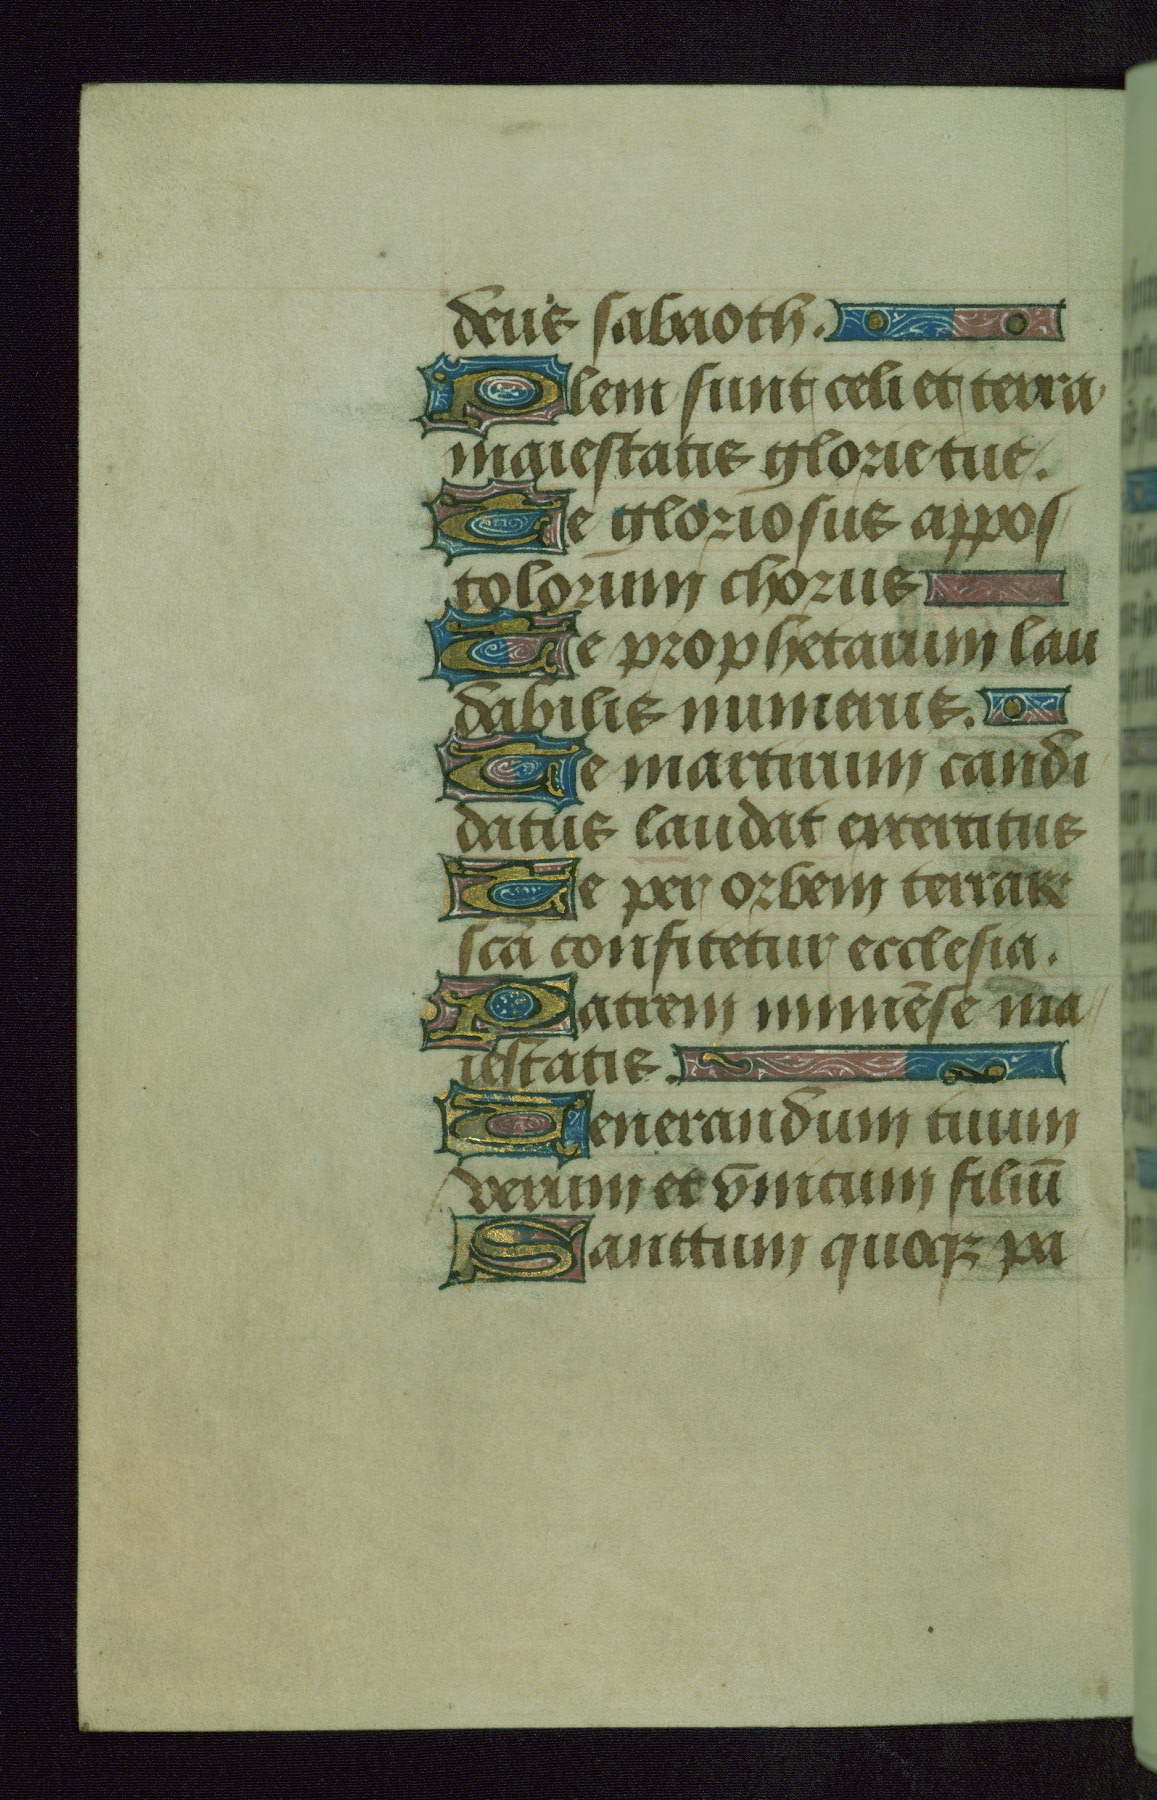 deus sabaoth.
Plem sunt celi et terra
maiestatis glorie tue.
Te gloriosus appos
tolorum chorus
Te prophetarum lau
dabilis numerus.
Te marturum candi
datus laudat exercitus
Te per orbem terrarꝝ
scā confitetur ecclesia.
Patrem immēse ma
iestatis.
Venerandum tuum
verum et vnicum filiū
Sanctum quoqꝫ pa